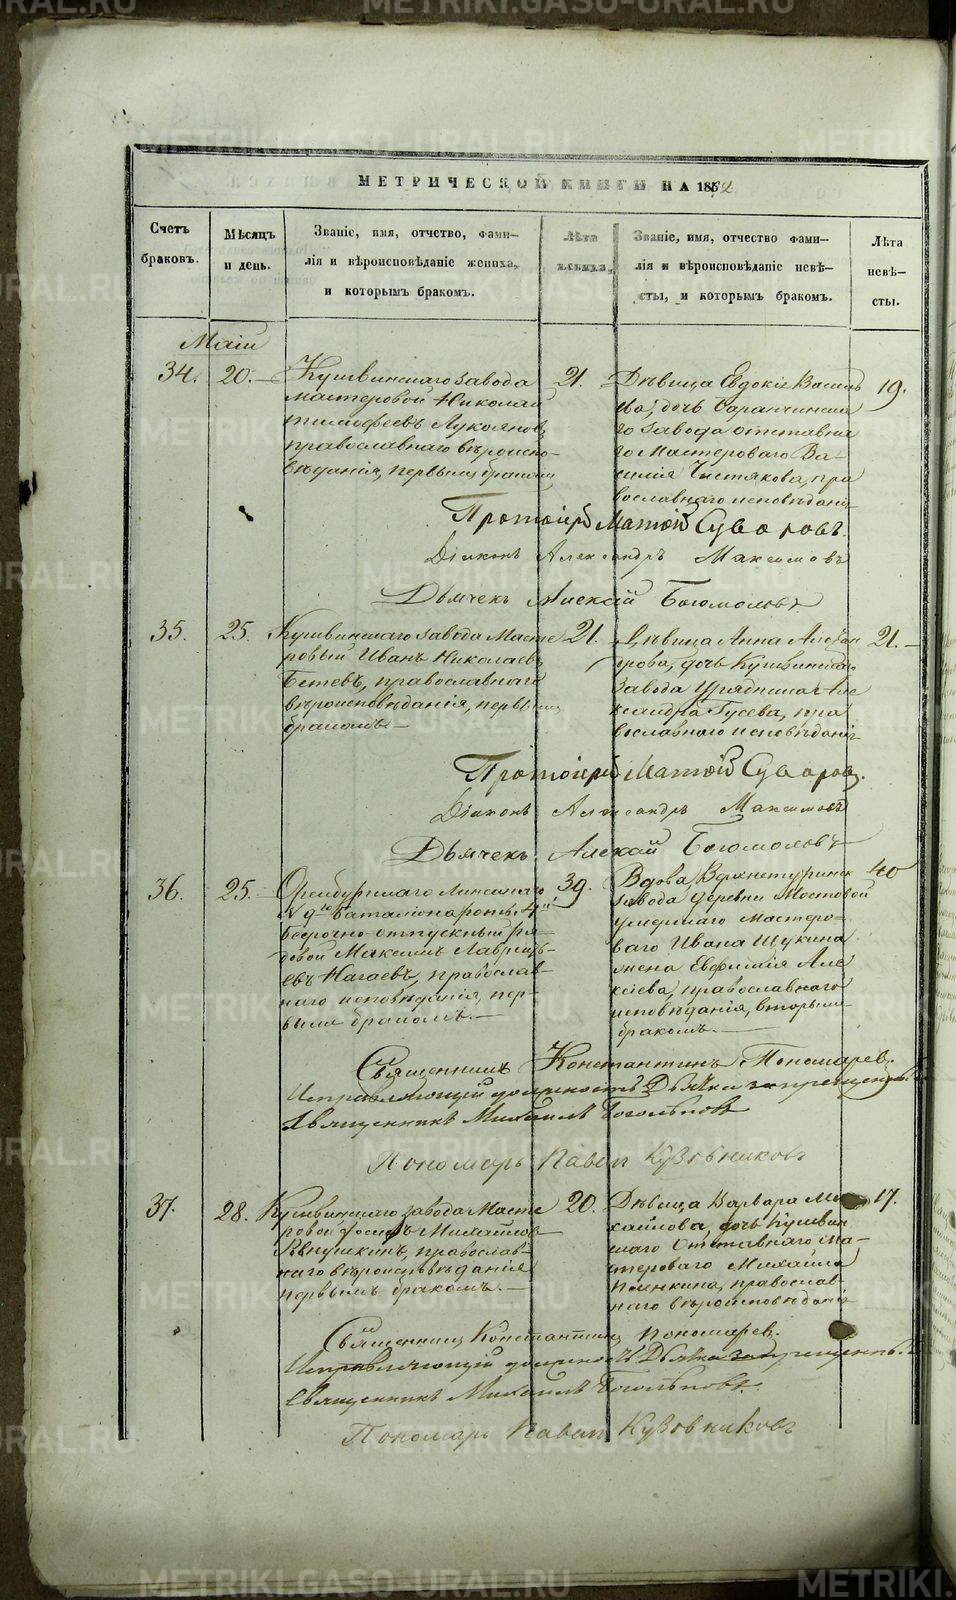 МЕТРИЧЕСКОЙ КНИГИ НА 1852
Счетъ браковъ.
Мѣсяцъ и день.
Званіе, имя, отчетво, фами-
лія и вѣроисповѣданіе жениха,
и которымъ бракомъ.
Лѣта жениха.
Званіе, имя, отчество фами-
лія и вѣроисповѣданіе невѣ-
сты, и которымъ бракомъ.
Лѣта
невѣ-
сты.
Маій
34. 20.
Кушвинскаго завода
мастеровой Николай
Тимофеевъ Лукояновъ,
православнаго вѣроиспо-
вѣданія, первымъ бракомъ
21.
Дѣвица Евдокія Василь
ева, дочь Баранчинска
го завода отставна
го Мастероваго Ва-
силія Чистякова, пра
вославнаго исповѣданія
19.
Протоіерей Матѳій Суворовъ.
Діаконъ Александръ Максимовъ
Дьячекъ Алексій Богомоловъ
35. 25.
Кушвинскаго завода Масте
ровый Иванъ Николаевъ
Бетевъ, православнаго
вѣроисповѣданія, первымъ
бракомъ
21.
Дѣвица Анна Александ
рова, дочь Кушвинскаго
завода Урядника Але
ксандра Гусева, пра
вославнаго исповѣданія
21.
Протоіерей Матѳій Суворовъ.
Діаконъ Александръ Максимовъ
Дьячекъ Алексій Богомоловъ
36. 25.
Оренбургскаго Линейнаго
№ 9го баталіона роты 4й
безсрочно-отпускный ря-
довой Максимъ Лавренть-
евъ Нагаевъ, православ-
наго исповѣданія, пер-
вымъ бракомъ.
39.
Вдова, Верхнетуринск
завода деревни Мостовой
умершаго Мастеро-
ваго Ивана Щукина
жена Евфимія Але
ксіева, православнаго
исповѣданія, вторымъ
бракомъ.
40
Священникъ Константинъ Пономарев.
Исправляющій должность Дьячка запрещенный
Священникъ Михаилъ Боголѣповъ
Пономарь Павелъ Кузовниковъ
37. 28.
Кушвинскаго завода Масте
ровой Іосифъ Михайловъ
православ-
наго вѣроисповѣданія
первымъ бракомъ.
20.
Дѣвица Варвара Ми
хайлова, дочь Кушвин
скаго Отставнаго Ма-
стероваго Михайла
православ-
наго вѣроисповѣданія
17.
Священникъ Константинъ Пономарев.
Исправляющій должность Дьячка запрещенный
Священникъ Михаилъ Боголѣповъ.
Пономарь Павелъ Кузовниковъ
METRIKI.GASO-URAL.RU